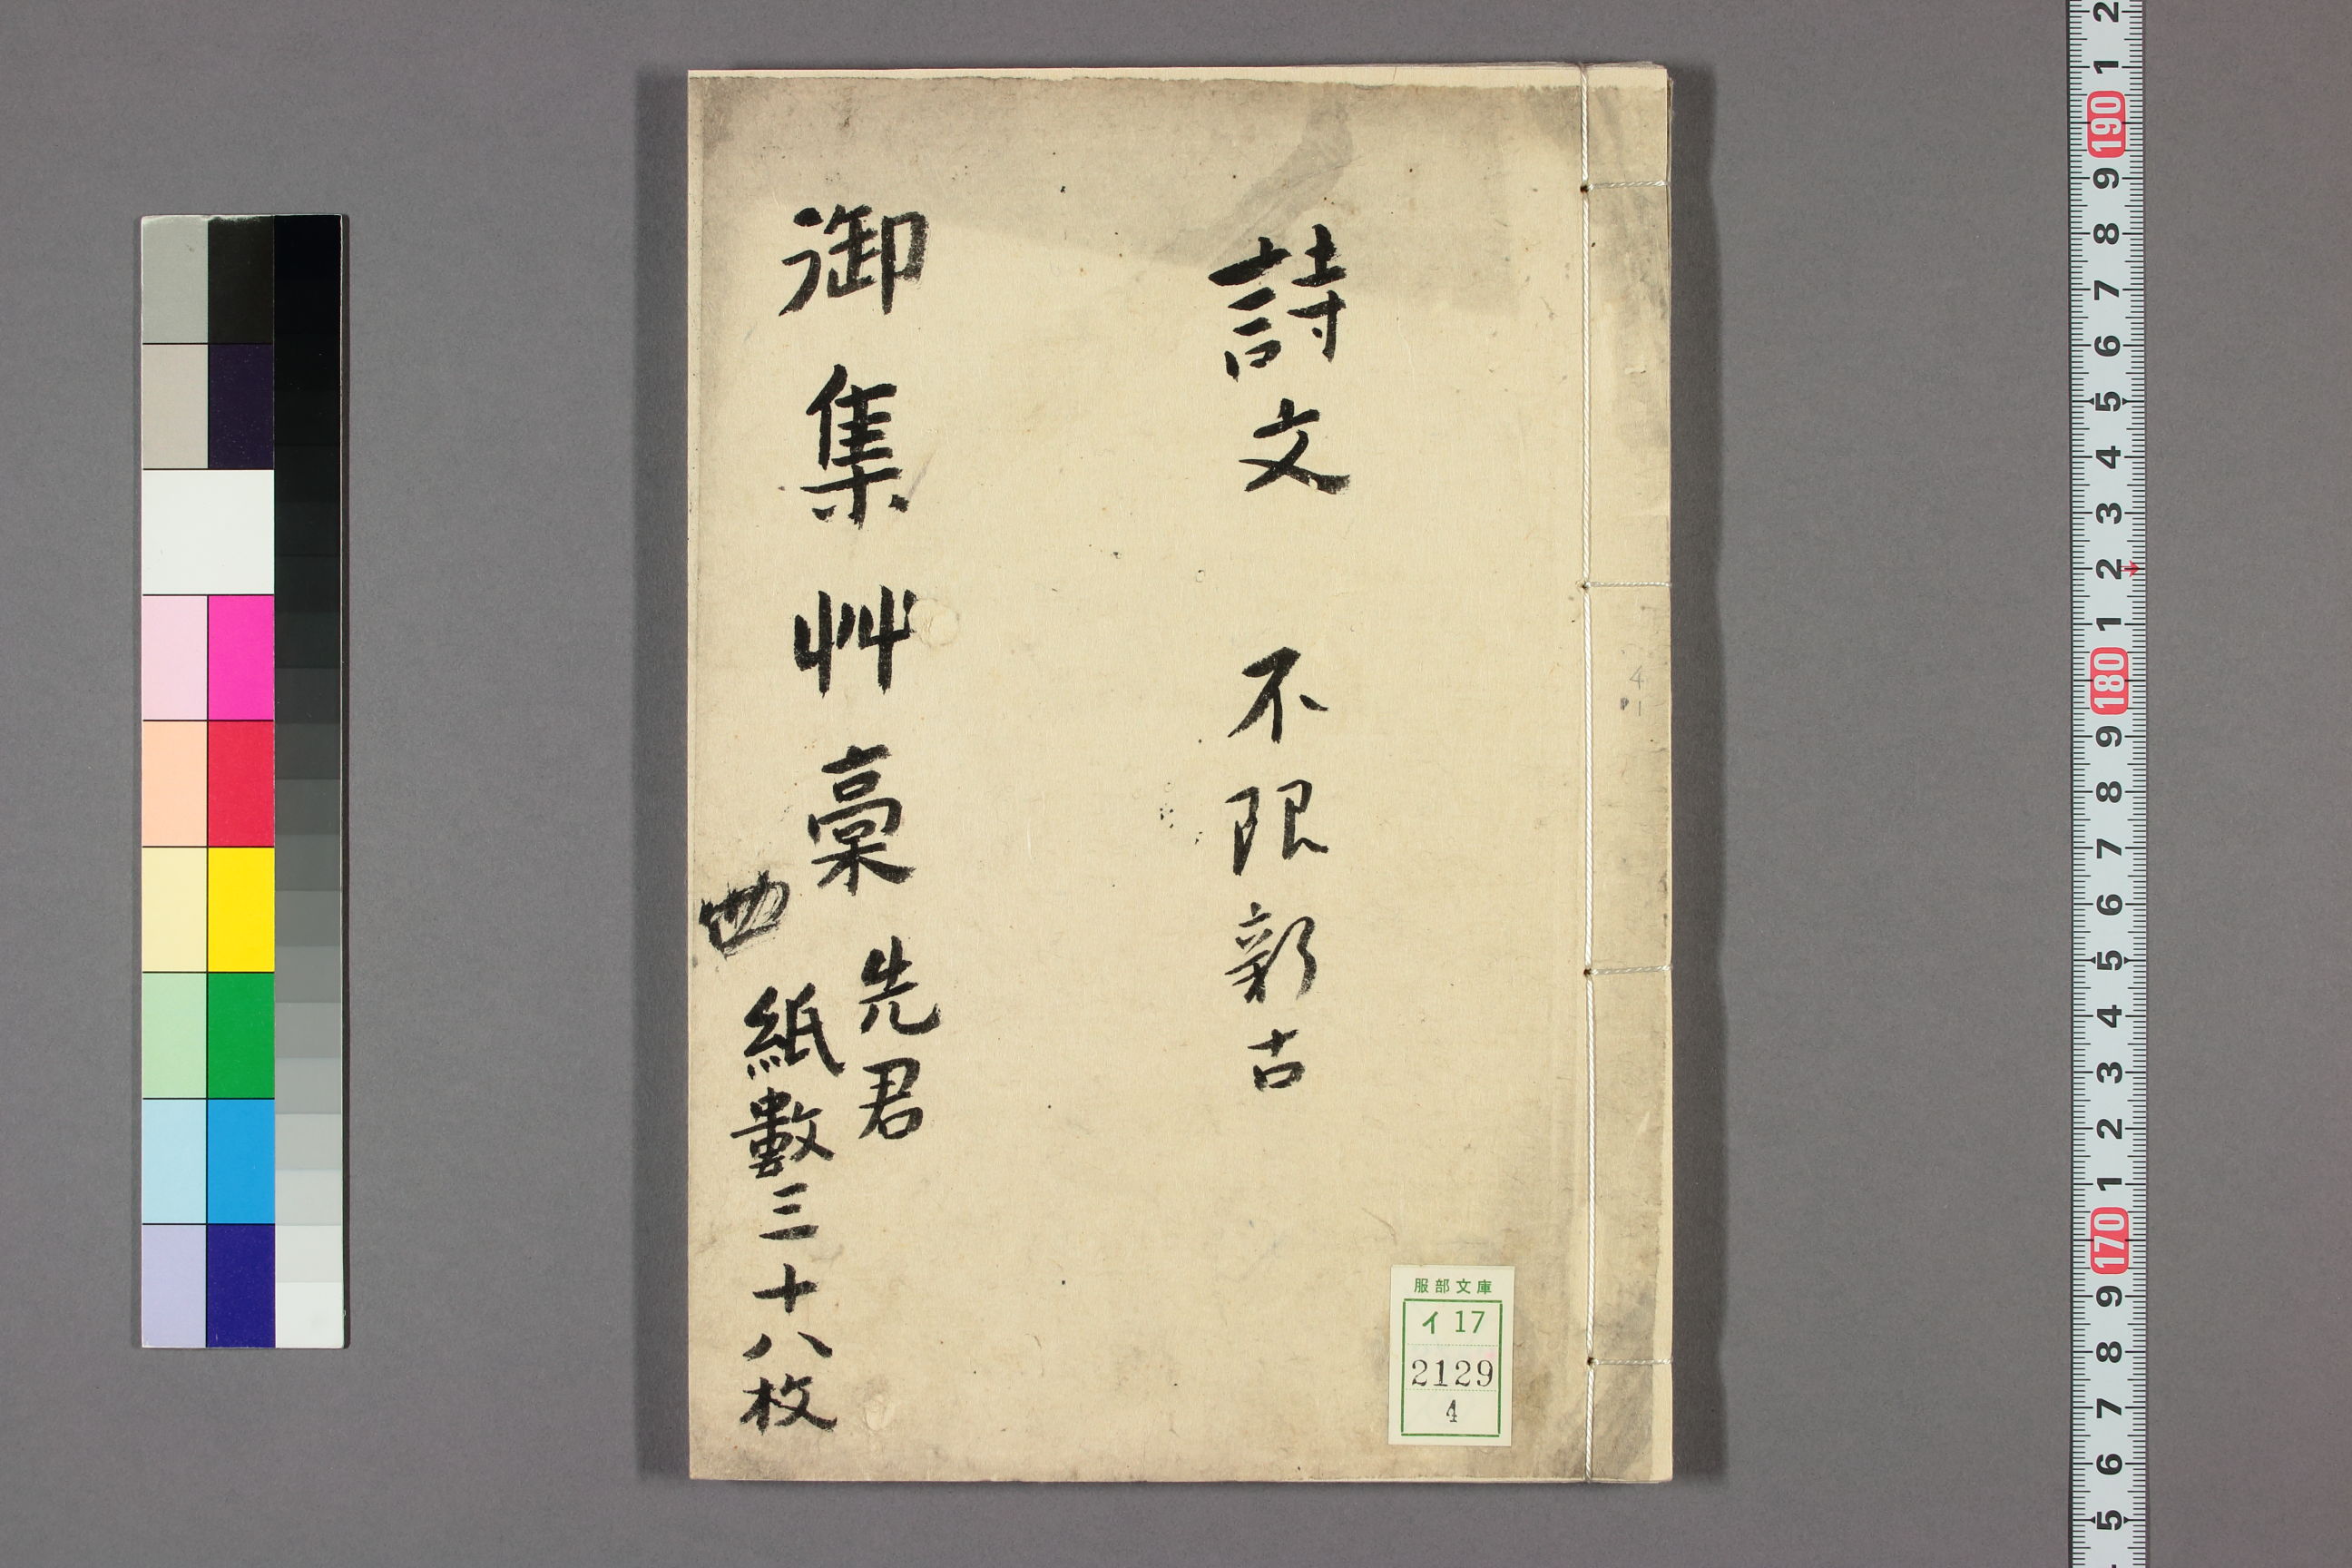 詩文 不限新古
御集艸稾
先君
紙數三十八枚
服部文庫
イ 17
2129
4
2
1
190
9
8
7
6
5
4
3
2
1
180
9
8
7
6
5
4
3
2
1
170
9
8
7
6
5